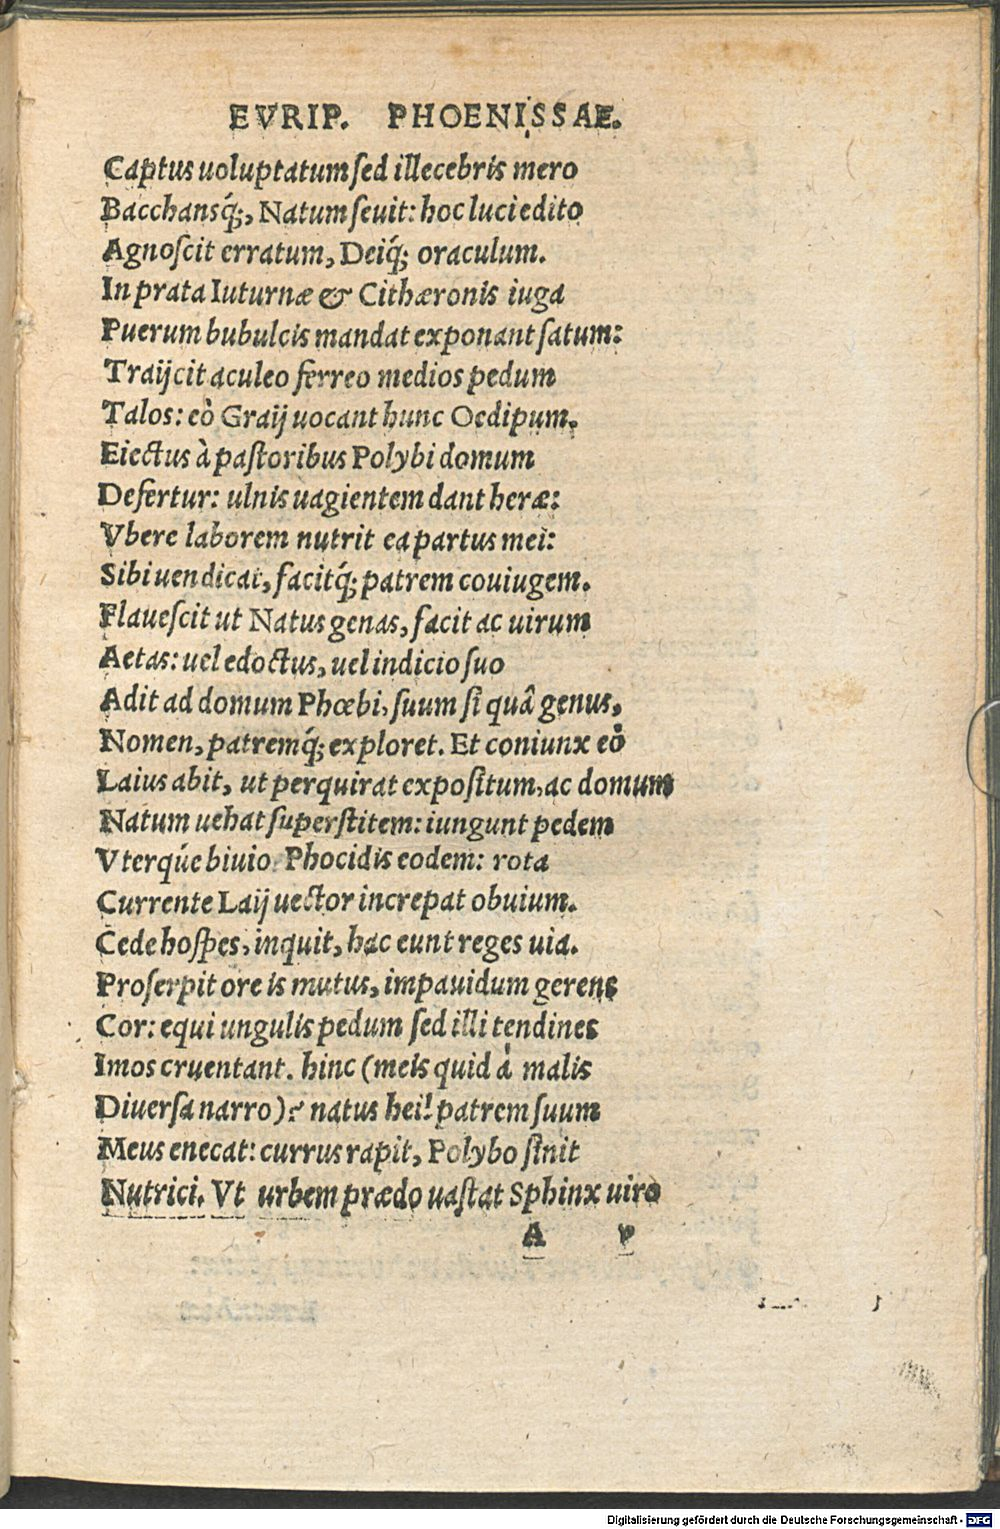 EVRIP. PHOENISSAE.
Captus uoluptatum sed illecebris mero
Bacchansq́;, Natum seuit: hoc luci edito
Agnoscit erratum, Deiq́; oraculum.
In prata Iuturnæ & Cithæronis iuga
Puerum bubulcis mandat exponant satum:
Traijcit aculeo ferreo medios pedum
Talos: eò Graij uocant hunc Oedipum.
Eiectus à pastoribus Polybi domum
Defertur: ulnis uagientem dant heræ:
Vbere laborem nutrit ea partus mei:
Sibi uendicat, facitq́; patrem couiugem.
Flauescit ut Natus genas, facit ac uirum
Aetas: uel edoctus, uel indicio suo
Adit ad domum Phœbi, suum si quâ genus,
Nomen, patremq́; exploret. Et coniunx eò
Laius abit, ut perquirat expositum, ac domum
Natum uehat superstitem: iungunt pedem
Vterq́ue biuio Phocidis eodem: rota
Currente Laij uector increpat obuium.
Cede hospes, inquit, hac eunt reges uia.
Proserpit ore is mutus, impauidum gerens
Cor: equi ungulis pedum sed illi tendines
Imos cruentant. hinc (meis quid à malis
Diuersa narro)? natus hei! patrem suum
Meus enecat: currus rapit, Polybo sinit
Nutrici. Vt urbem prædo uastat Sphinx uirò
A v
Digitalisierung gefördert durch die Deutsche Forschungsgemeinschaft - DFG